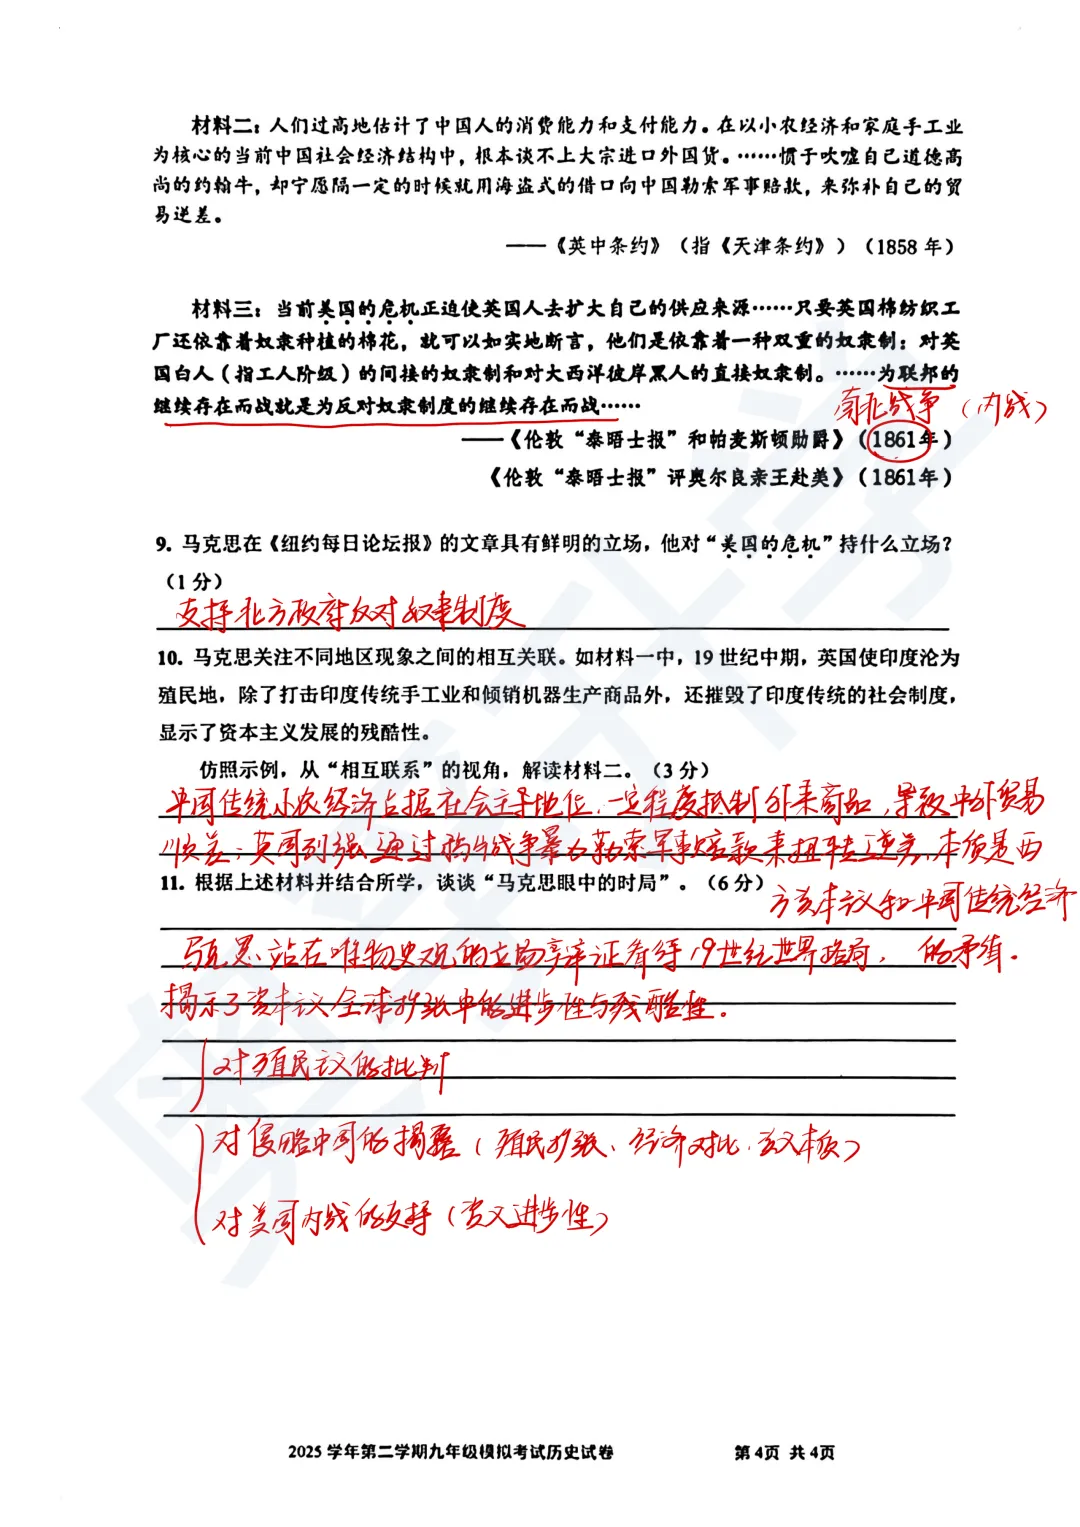 材料二：人们过高地估计了中国人的消费能力和支付能力。在以小农经济和家庭手工业
为核心的当前中国社会经济结构中，根本谈不上大宗进口外国货。……惯于吹嘘自己道德高
尚的约翰牛，却宁愿隔一定的时候就用海盗式的借口向中国勒索军事赔款，来弥补自己的贸
易逆差。
——《英中条约》（指《天津条约》）（1858 年）
材料三：当前美国的危机正迫使英国人去扩大自己的供应来源……只要英国棉纺织工
厂还依靠着奴隶种植的棉花，就可以如实地断言，他们是依靠着一种双重的奴隶制：对英
国白人（指工人阶级）的间接的奴隶制和对大西洋彼岸黑人的直接奴隶制。……为联邦的
继续存在而战就是为反对奴隶制度的继续存在而战……
南北战争（内战）
——《伦敦“泰晤士报”和帕麦斯顿勋爵》（1861年）
《伦敦“泰晤士报”评奥尔良亲王赴美》（1861年）
9. 马克思在《纽约每日论坛报》的文章具有鲜明的立场，他对“美国的危机”持什么立场？
（1 分）
支持北方政府反对奴隶制度
10. 马克思关注不同地区现象之间的相互关联。如材料一中，19 世纪中期，英国使印度沦为
殖民地，除了打击印度传统手工业和倾销机器生产商品外，还摧毁了印度传统的社会制度，
显示了资本主义发展的残酷性。
仿照示例，从“相互联系”的视角，解读材料二。（3 分）
中国传统小农经济占据社会主导地位，一定程度抵制外来商品，导致中外贸易
顺差；英国列强通过鸦片战争暴力勒索军事赔款来扭转逆差，本质是西
方资本主义和中国传统经济
的矛盾。
11. 根据上述材料并结合所学，谈谈“马克思眼中的时局”。（6 分）
马克思站在唯物史观的立场辩证看待19世纪世界格局，
揭示了资本主义全球扩张中的进步性与残酷性。
对殖民主义的批判
对侵略中国的揭露（殖民扩张、经济对比、主义本质）
对美国内战的支持（资义进步性）
2025 学年第二学期九年级模拟考试历史试卷
第 4页 共 4页